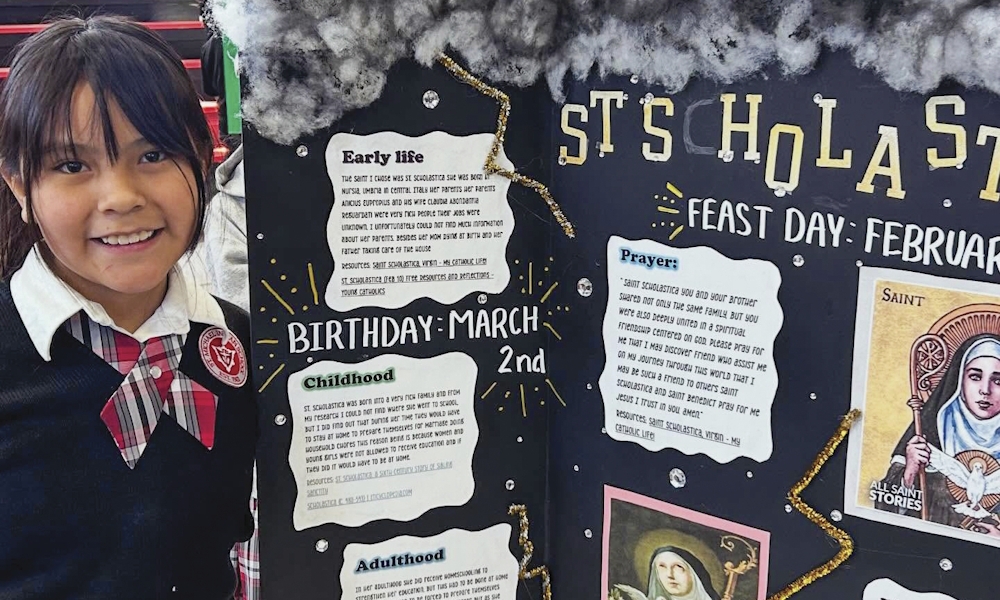 ST SCHOLAST
FEAST DAY: FEBRUAR
Early life
The saint I chose was St. Scholastica she was born in
Nursia, Umbria in central Italy her parents her parents
Anicius Eupropius and his wife Claudia Abondantia
Reguardati were very rich people their jobs were
unknown. I unfortunately could not find much information
about her parents, besides her mom dying at birth and her
father taking care of the house
Resources: Saint Scholastica, Virgin - My Catholic Life!
St. Scholastica (Feb 10) Free Resources and Reflections -
Young Catholics
BIRTHDAY: MARCH
2nd
Childhood
St. Scholastica was born into a very rich family and from
my research I could not find where she went to school.
But I did find out that during her time they would have
to stay at home to prepare themselves for marriage doing
household chores this reason being is because women and
young girls were not allowed to receive education and if
they did it would have to be at home.
Resources: St. Scholastica: a sixth-century story of
sanctity
Scholastica
Encyclopedia.com
Adulthood
In her adulthood she did receive homeschooling to
strengthen her education, but this had to be done at home
to be forced to prepare themselves
Prayer:
"Saint Scholastica you and your brother
shared not only the same family, but you
were also deeply united in a spiritual
friendship centered on God. Please pray for
me that I may discover friend who assist me
on my journey through this world that I
may be such a friend to others Saint
Scholastica and Saint Benedict pray for me
Jesus I trust in you amen."
Resources: Saint Scholastica, Virgin - My
Catholic Life!
SAINT
ALL SAINT
STORIES